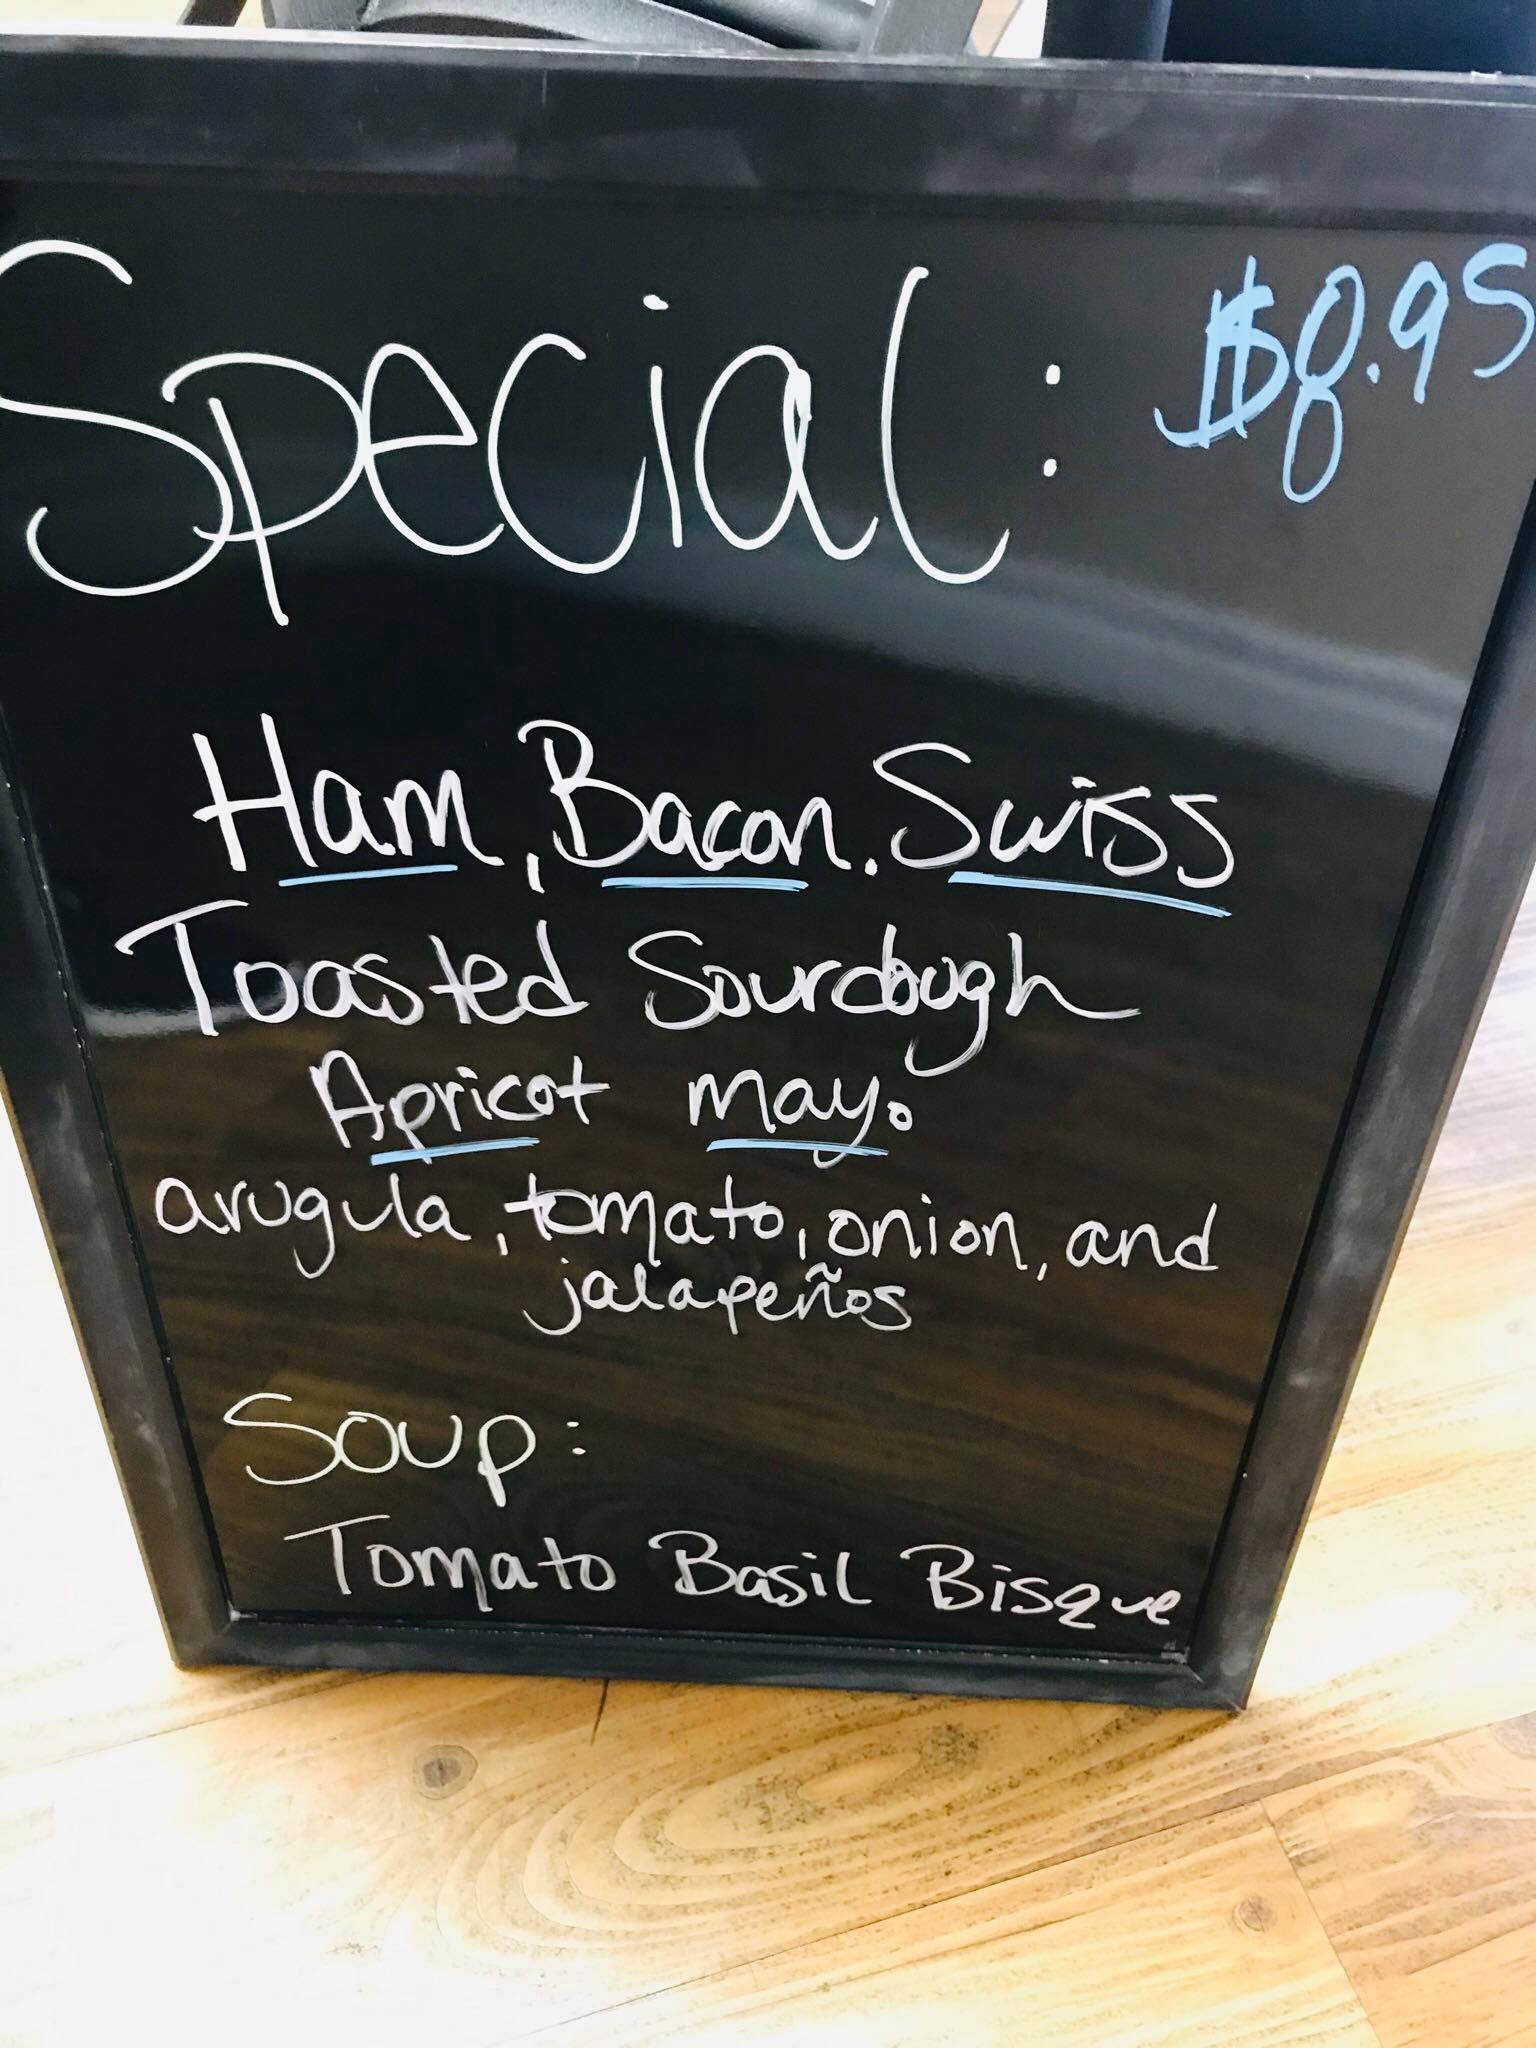 Special: $8.95
Ham, Bacon. Swiss
Toasted Sourdough
Apricot mayo
arugula, tomato, onion, and
jalapeños
Soup:
Tomato Basil Bisque